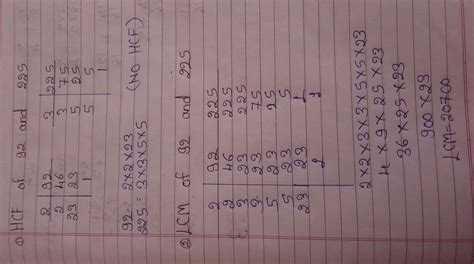 ① HCF of 92 and 225
2 | 92    3 | 225
2 | 46    3 | 75
23 | 23    5 | 25
1    5 | 5
1
92 = 2×2×23
225 = 3×3×5×5 (NO HCF)
② LCM of 92 and 225
2 | 92 225
2 | 46 225
3 | 23 225
3 | 23 75
5 | 23 25
5 | 23 5
23 | 23 1
1 1
2×2×3×3×5×5×23
4×9×25×23
36×25×23
900×23
LCM=20700